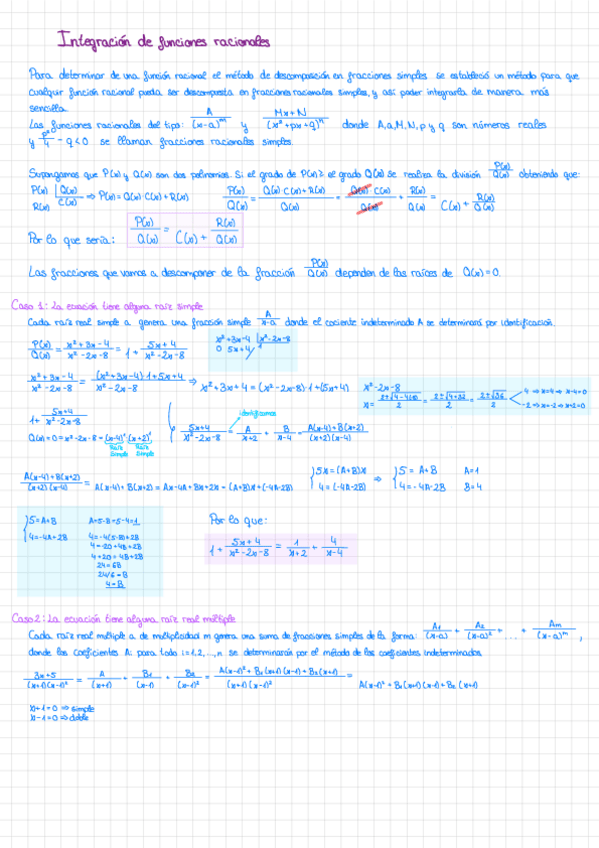 Integración de funciones racionales
Para determinar de una función racional el método de descomposición en fracciones simples se estableció un método para que
cualquir función racional pueda ser descompuesta en fracciones racionales simples, y así poder integrarla de manera más
sencilla.
Las funciones racionales del tipo: A/(x-a)^m y Mx+N/(x²+px+q)^n donde A,a,M,N,p y q son números reales
y p²/4 - q<0 se llaman fracciones racionales simples.
Supongamos que P(x) y Q(x) son dos polinomios. Si el grado de P(x) ≥ el grado Q(x) se realiza la división P(x)/Q(x) obteniendo que:
P(x) |Q(x)
R(x) C(x) ⇒ P(x)=Q(x)·C(x)+R(x) P(x)/Q(x) = Q(x)·C(x)+R(x)/Q(x) = Q(x)·C(x)/Q(x) + R(x)/Q(x) = C(x) + R(x)/Q(x)
Por lo que sería: P(x)/Q(x) = C(x) + R(x)/Q(x)
Las fracciones que vamos a descomponer de la fracción P(x)/Q(x) dependen de las raíces de Q(x)=0.
Caso 1: La ecuación tiene alguna raíz simple
Cada raíz real simple a genera una fracción simple A/x-a donde el cociente indeterminado A se determinará por identificación.
P(x)/Q(x) = x²+3x-4/x²-2x-8 = 1 + 5x+4/x²-2x-8
x²+3x-4 |x²-2x-8
0 5x+4 1
x²+3x-4/x²-2x-8 = (x²+3x-4)·1+5x+4/x²-2x-8 ⇒ x²+3x+4=(x²-2x-8)·1+(5x+4)
x²-2x-8
1+ 5x+4/x²-2x-8
identificamos
5x+4/x²-2x-8 = A/x+2 + B/x-4 = A(x-4)+B(x+2)/(x+2)(x-4)
Q(x)=0=x²-2x-8=(x-4)¹(x+2)¹
Raíz Simple Raíz Simple
A(x-4)+B(x+2)/(x+2)(x-4) = A(x-4)+B(x+2)=Ax-4A+Bx+2x=(A+B)x+(-4A-2B)
5x=(A+B)x
4=(-4A-2B)
⇒ 5=A+B A=1
4=-4A-2B B=4
5=A+B A=5-B=5-4=1
4=-4A+2B 4=-4(5-B)+2B
4=-20+4B+2B
4+20=4B+2B
24=6B
24/6=B
4=B
Por lo que:
1 + 5x+4/x²-2x-8 = 1/x+2 + 4/x-4
Caso 2: La ecuación tiene alguna raíz real múltiple
Cada raíz real múltiple a de multiplicidad m genera una suma de fracciones simples de la forma: A₁/(x-a) + A₂/(x-a)² + ... + Am/(x-a)^m ,
donde los coeficientes Ai para todo i=1,2,...,n se determinarán por el método de los coeficientes indeterminados
3x+5/(x+1)(x-1)² = A/(x+1) + B₁/(x-1) + B₂/(x-1) = A(x-1)²+B₁(x+1)(x-1)+B₂(x+1)/(x+1)(x-1)² =
A(x-1)²+B₁(x+1)(x-1)+B₂(x+1)
x+1=0 ⇒ simple
x-1=0 ⇒ doble